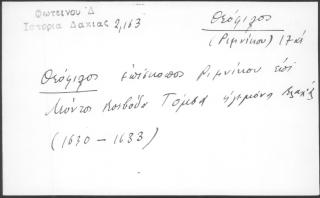 Φωτεινού Δ
Ιστορία Δακιας 2,163
Θεόφιλος
(Ριμνίκου) 17 αι
Θεόφιλος επίσκοπος Ριμνίκου επί
Βοεβόδα Τόμσα ηγεμόνα Βλαχίας
(1630 - 1633)